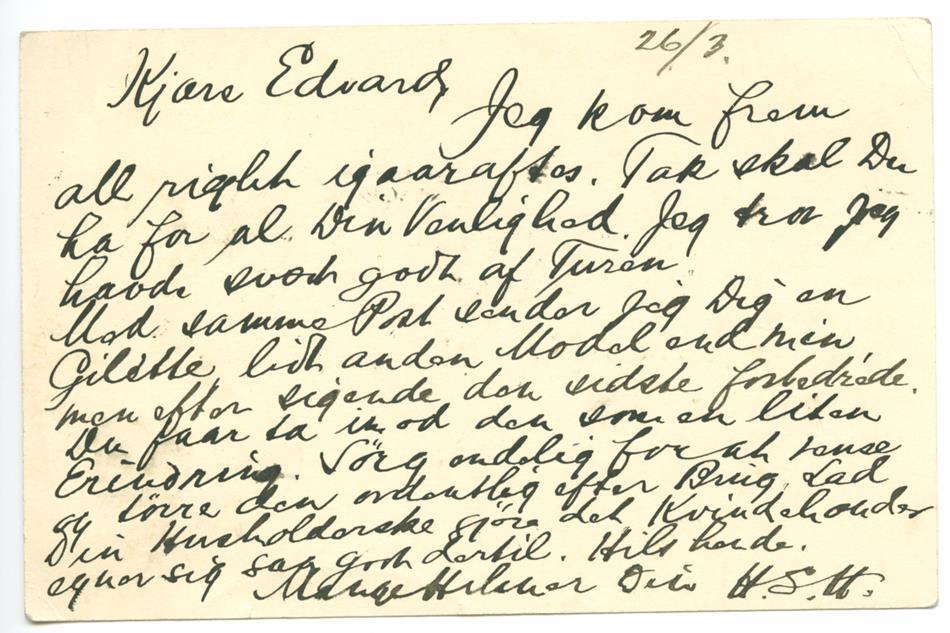 26/3.
Kjære Edvard,
Jeg kom frem
all right igaaraftes. Tak skal Du
ha for al Din Venlighed. Jeg tror jeg
havde svært godt af Turen.
Med samme Post sender jeg Dig en
Gilette, lidt anden Model end min
men efter sigende den sidste forbedrede.
Du faar ta imod den som en liten
Erindring. Sørg endelig for at rense
og tørre den ordentlig efter Brug. Lad
Din Husholderske gjøre det Kvindehænder
egner sig saa godt dertil. Hils hende.
Mange Hilsner Din H.S.H.